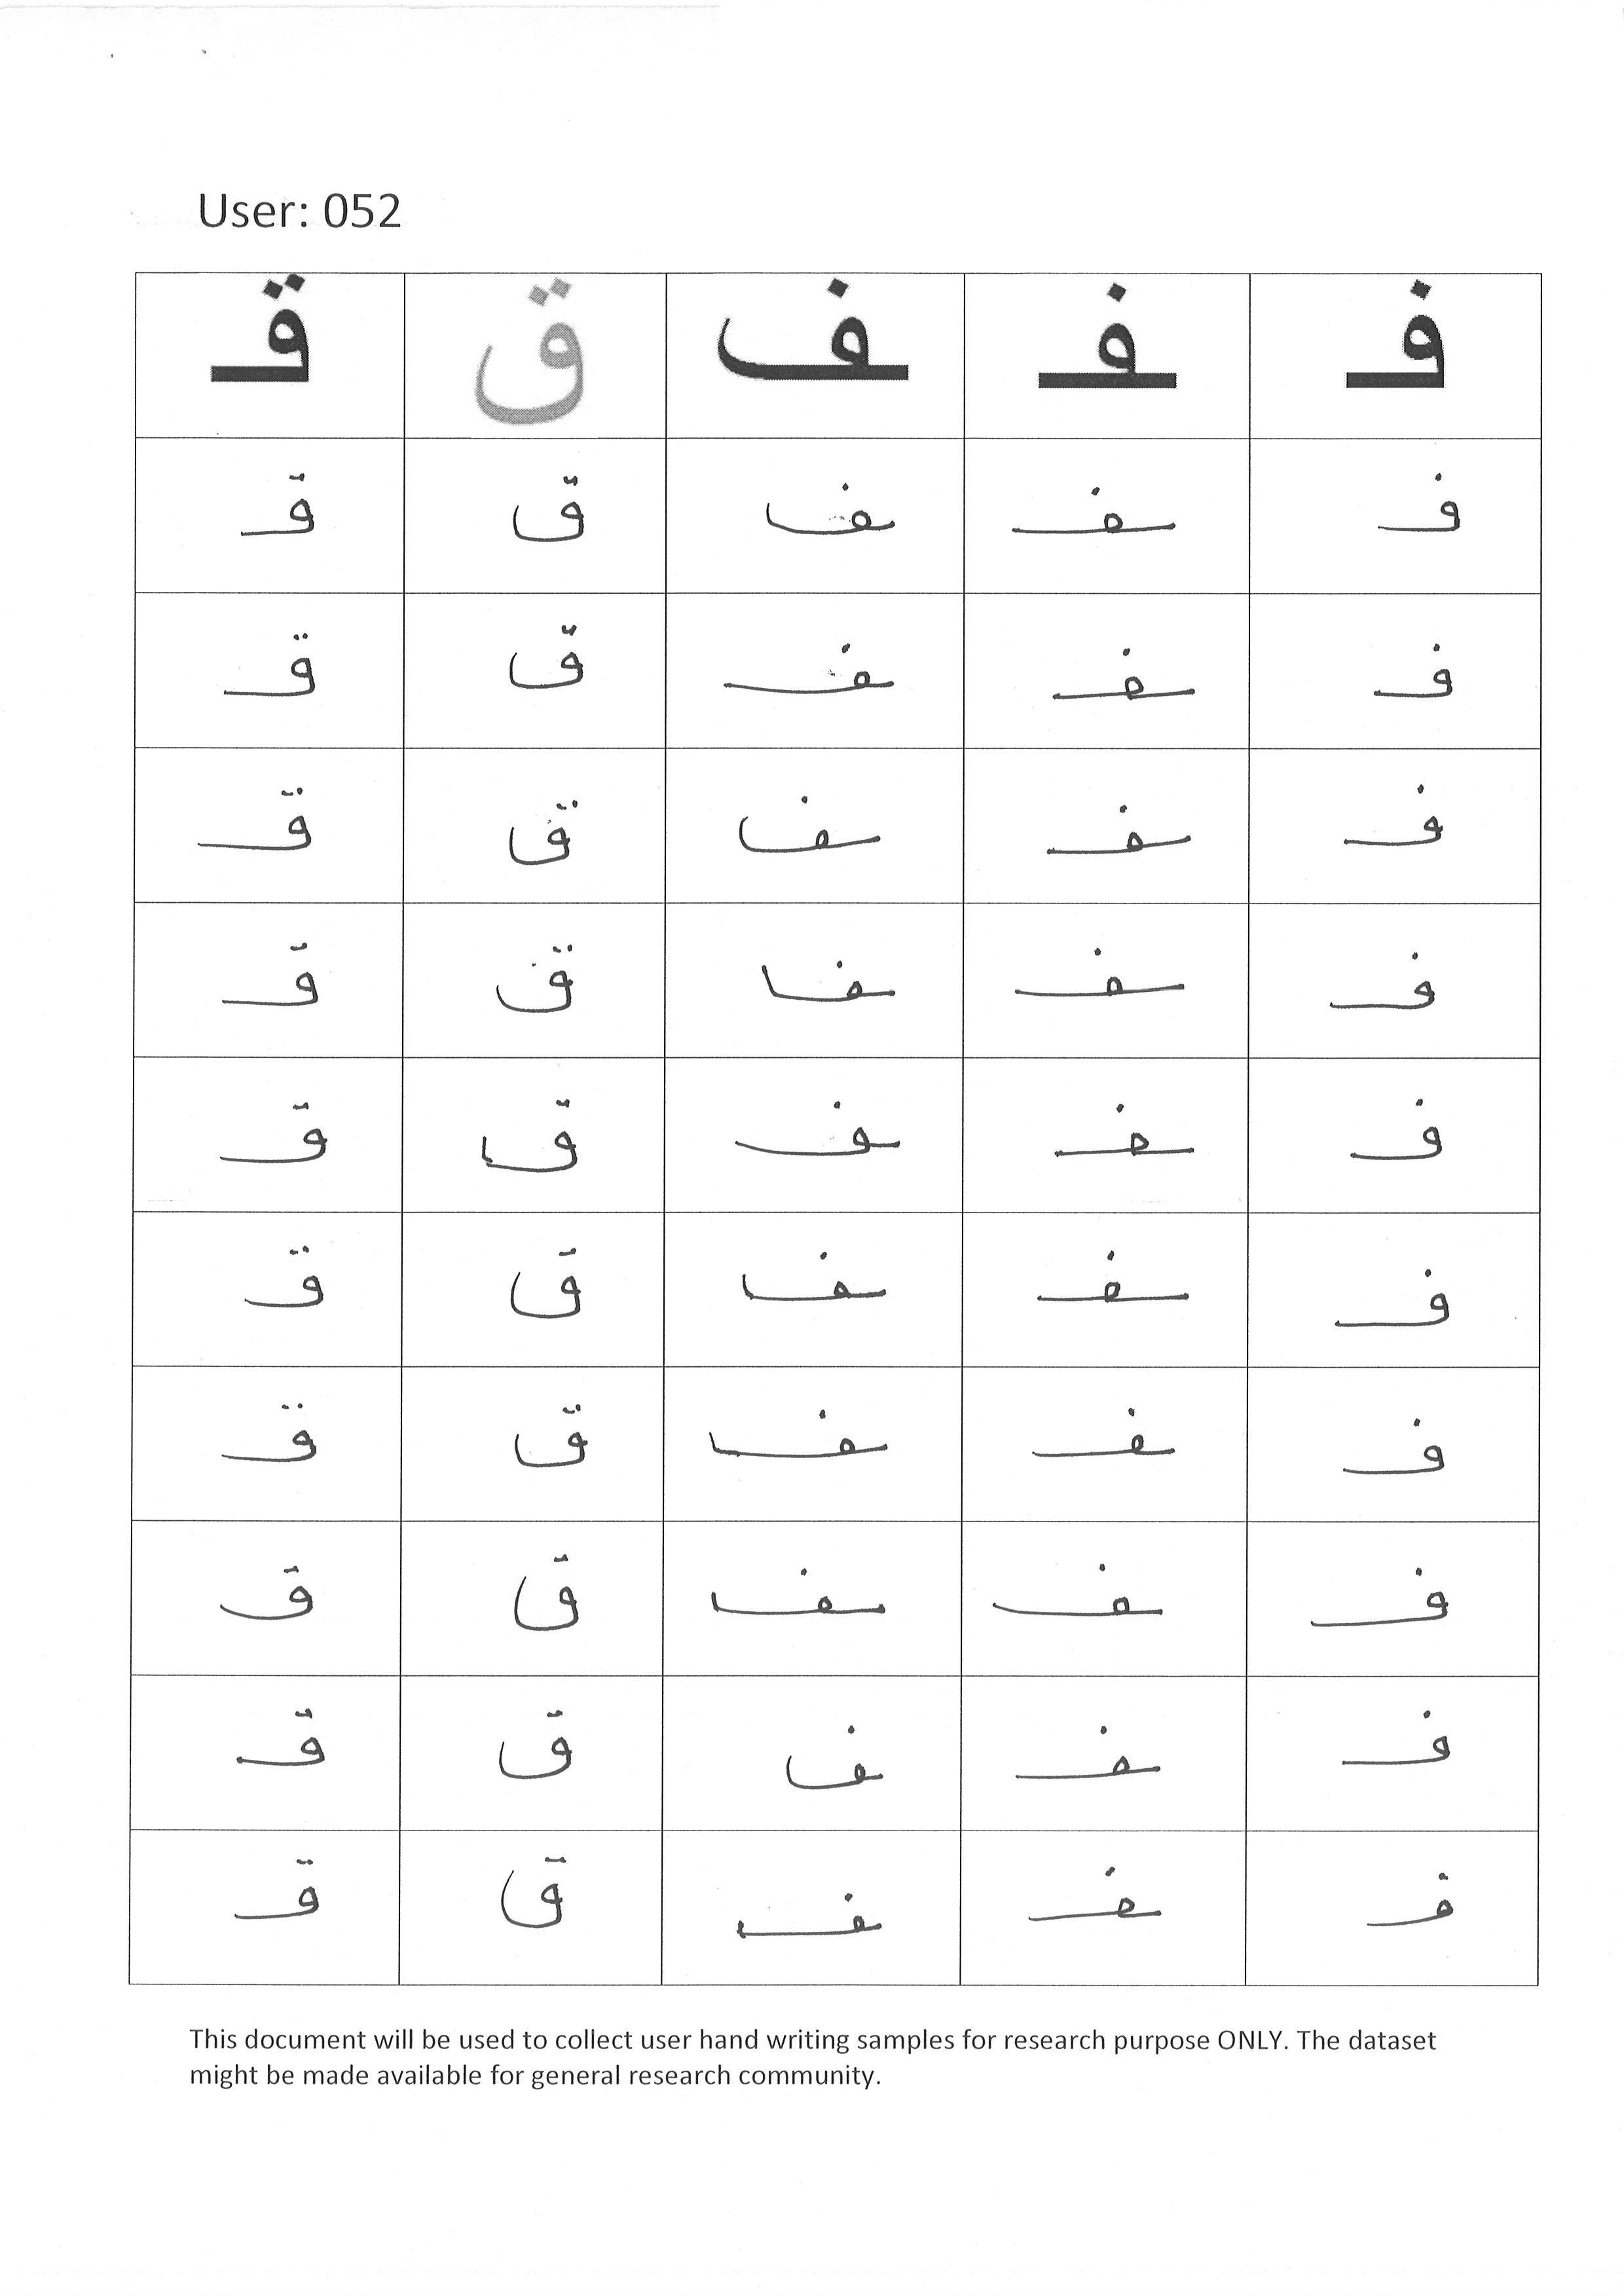 User: 052
فـ ـفـ ـف ق قـ
فـ ـفـ ـف ق قـ
فـ ـفـ ـف ق قـ
فـ ـفـ ـف ق قـ
فـ ـفـ ـف ق قـ
فـ ـفـ ـف ق قـ
فـ ـفـ ـف ق قـ
فـ ـفـ ـف ق قـ
فـ ـفـ ـف ق قـ
فـ ـفـ ـف ق قـ
فـ ـفـ ـف ق قـ
This document will be used to collect user hand writing samples for research purpose ONLY. The dataset
might be made available for general research community.